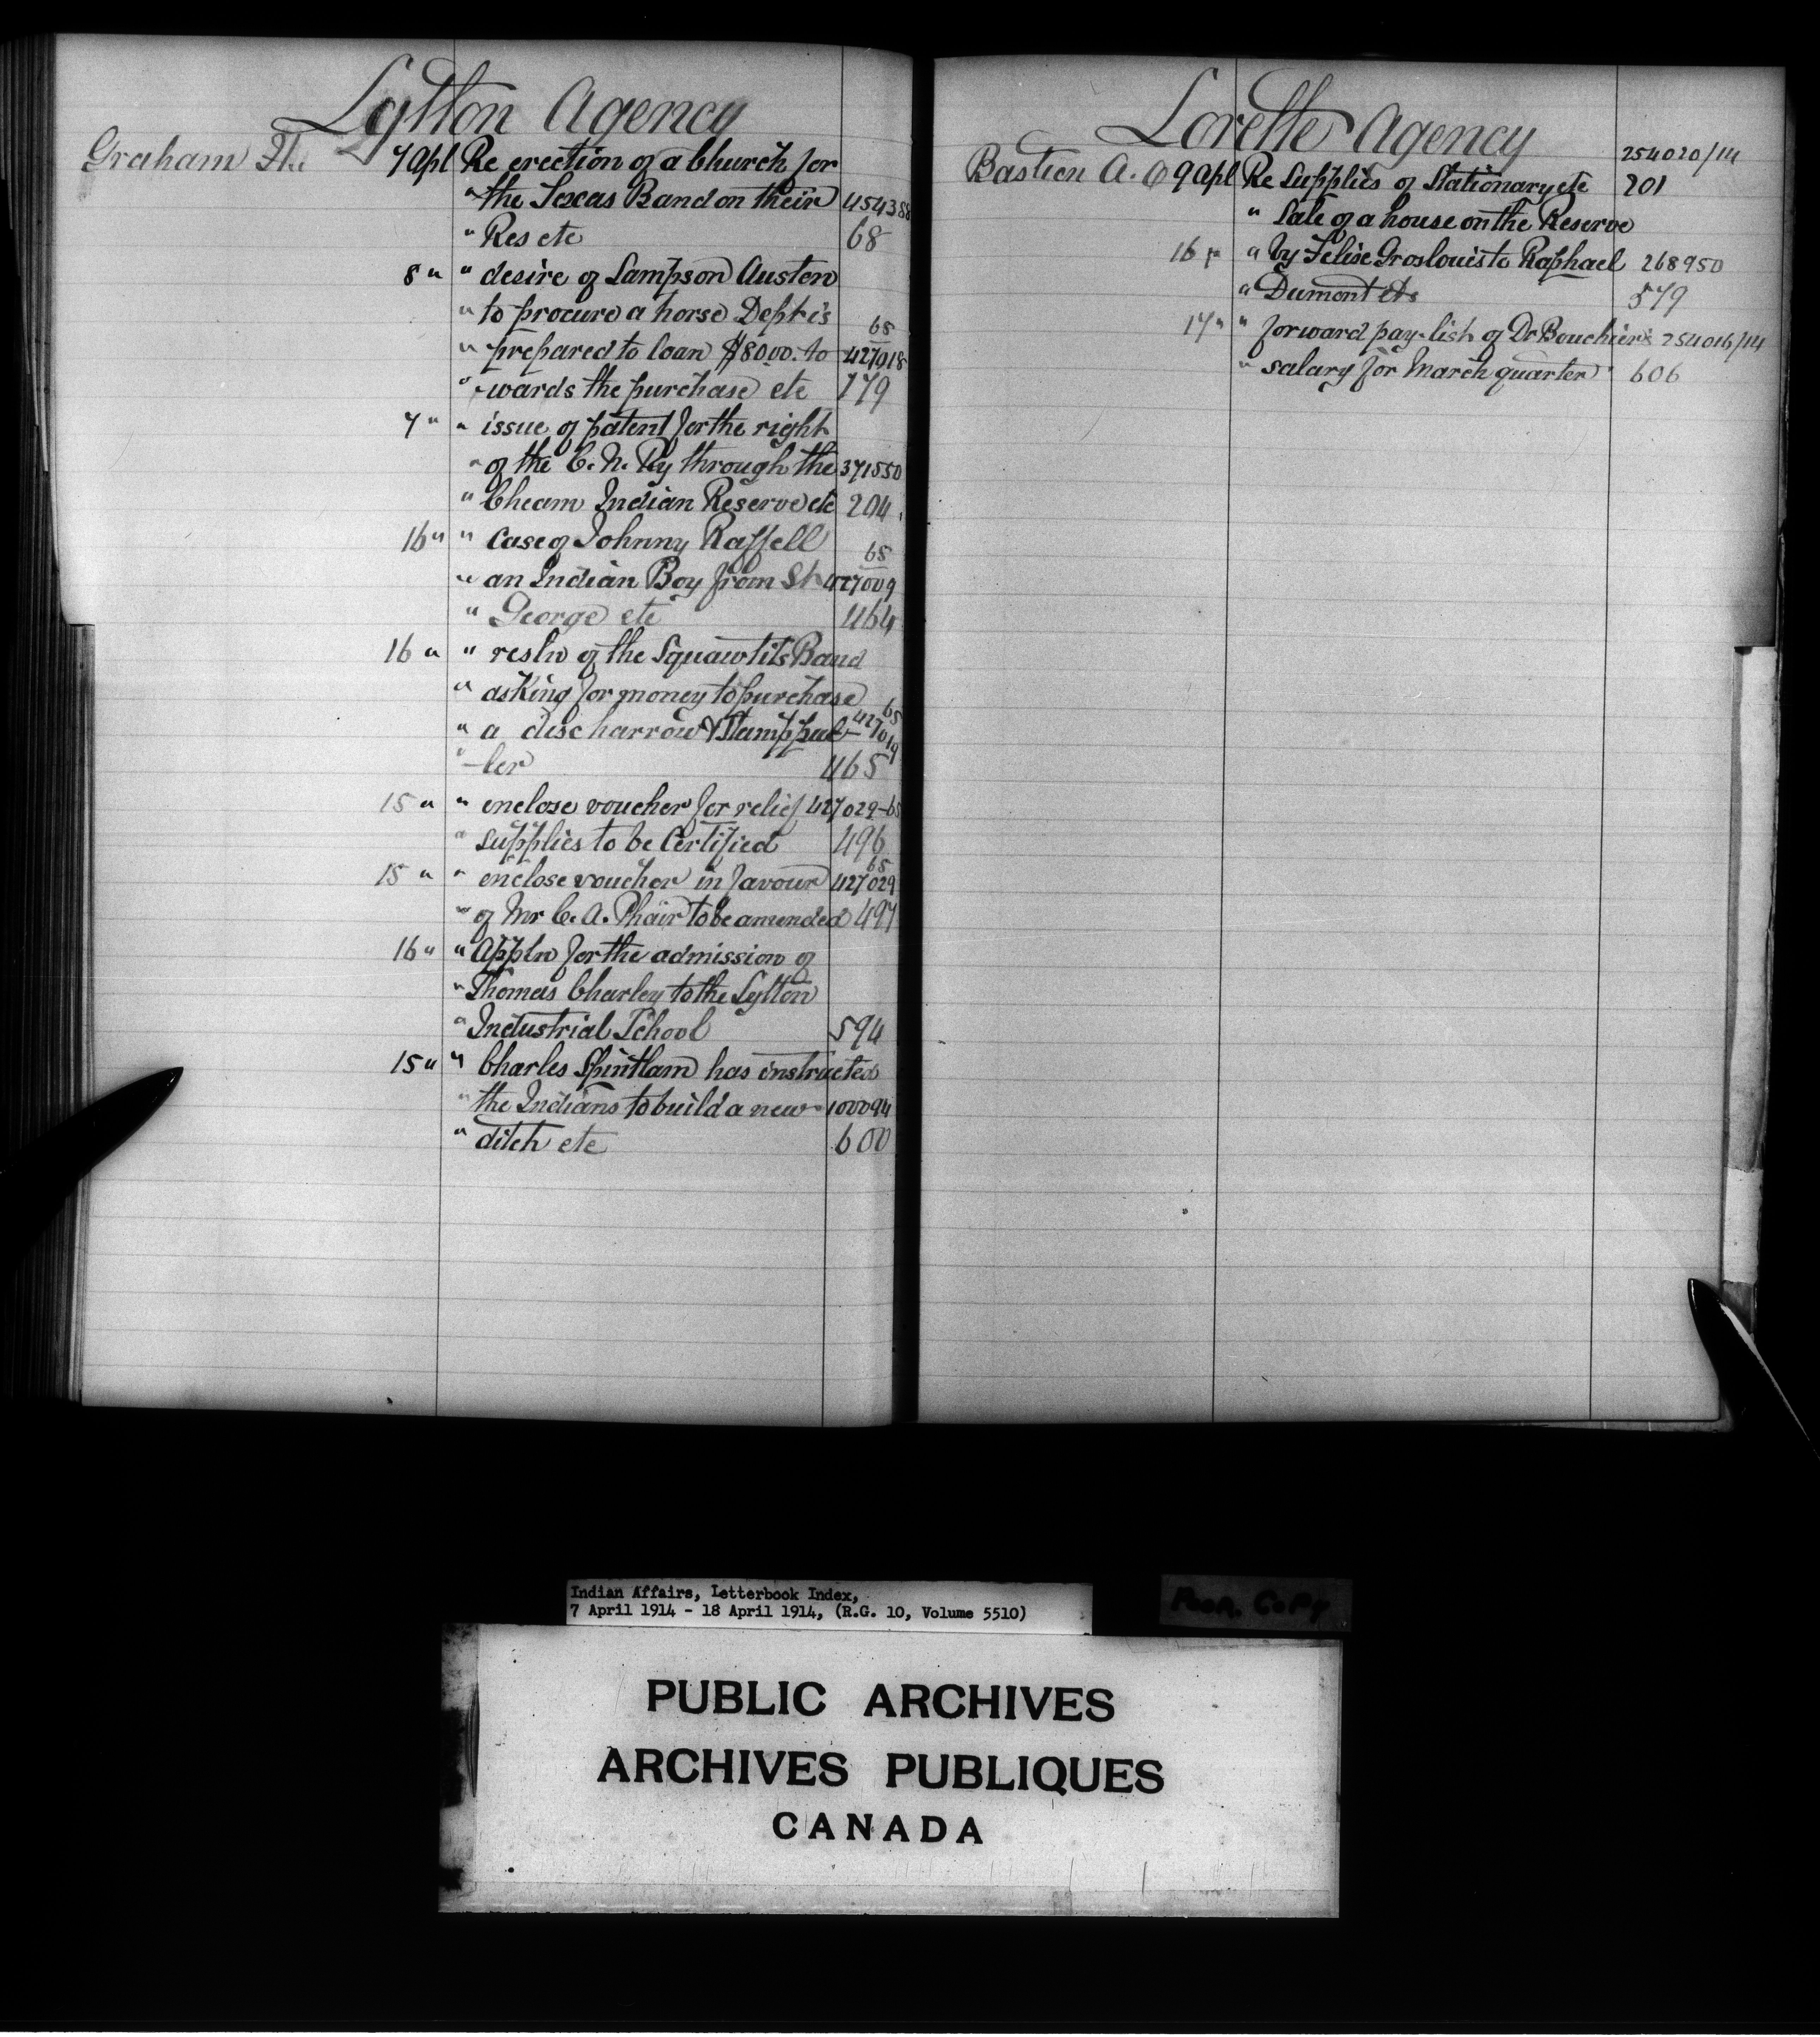 Lytton Agency
Graham H. 7 Apl Re erection of a Church for
" the Texas Band on their 454388
" Res etc 68
8 " " desire of Sampson Austen
" to procure a horse Dept is 65
" prepared to loan $80.00 to 427018
" -wards the purchase etc 179
7 " " issue of patent for the right
" of the C. N. Ry through the 371550
" Cheam Indian Reserve etc 204
16 " " Case of Johnny Raffell 65
" an Indian Boy from St 427009
" George etc 464
16 " " resln of the Squawtits Band
" asking for money to purchase 65
" a disc harrow & Stamp pul- 427019
" -ler 465
15 " " enclose voucher for relief 427029-65
" supplies to be Certified 496
15 " " enclose voucher in favour 65 427029
" of Mr C. A. Phair to be amended 497
16 " " Appln for the admission of
" Thomas Charley to the Lytton
" Industrial School 594
15 " " Charles Spintlam has instructed
" the Indians to build a new 100094
" ditch etc 600
Lorette Agency
254020/14
Bastien A. O 9 Apl Re Supplies of Stationary etc 201
" Sale of a house on the Reserve
16 " " by Felise Groslouis to Raphael 268950
" Dumont etc 579
17 " " forward pay-list of Dr Bouchier's 254016/14
" salary for March quarter 606
Indian Affairs, Letterbook Index,
7 April 1914 - 18 April 1914, (R.G. 10, Volume 5510)
Poor Copy
PUBLIC ARCHIVES
ARCHIVES PUBLIQUES
CANADA